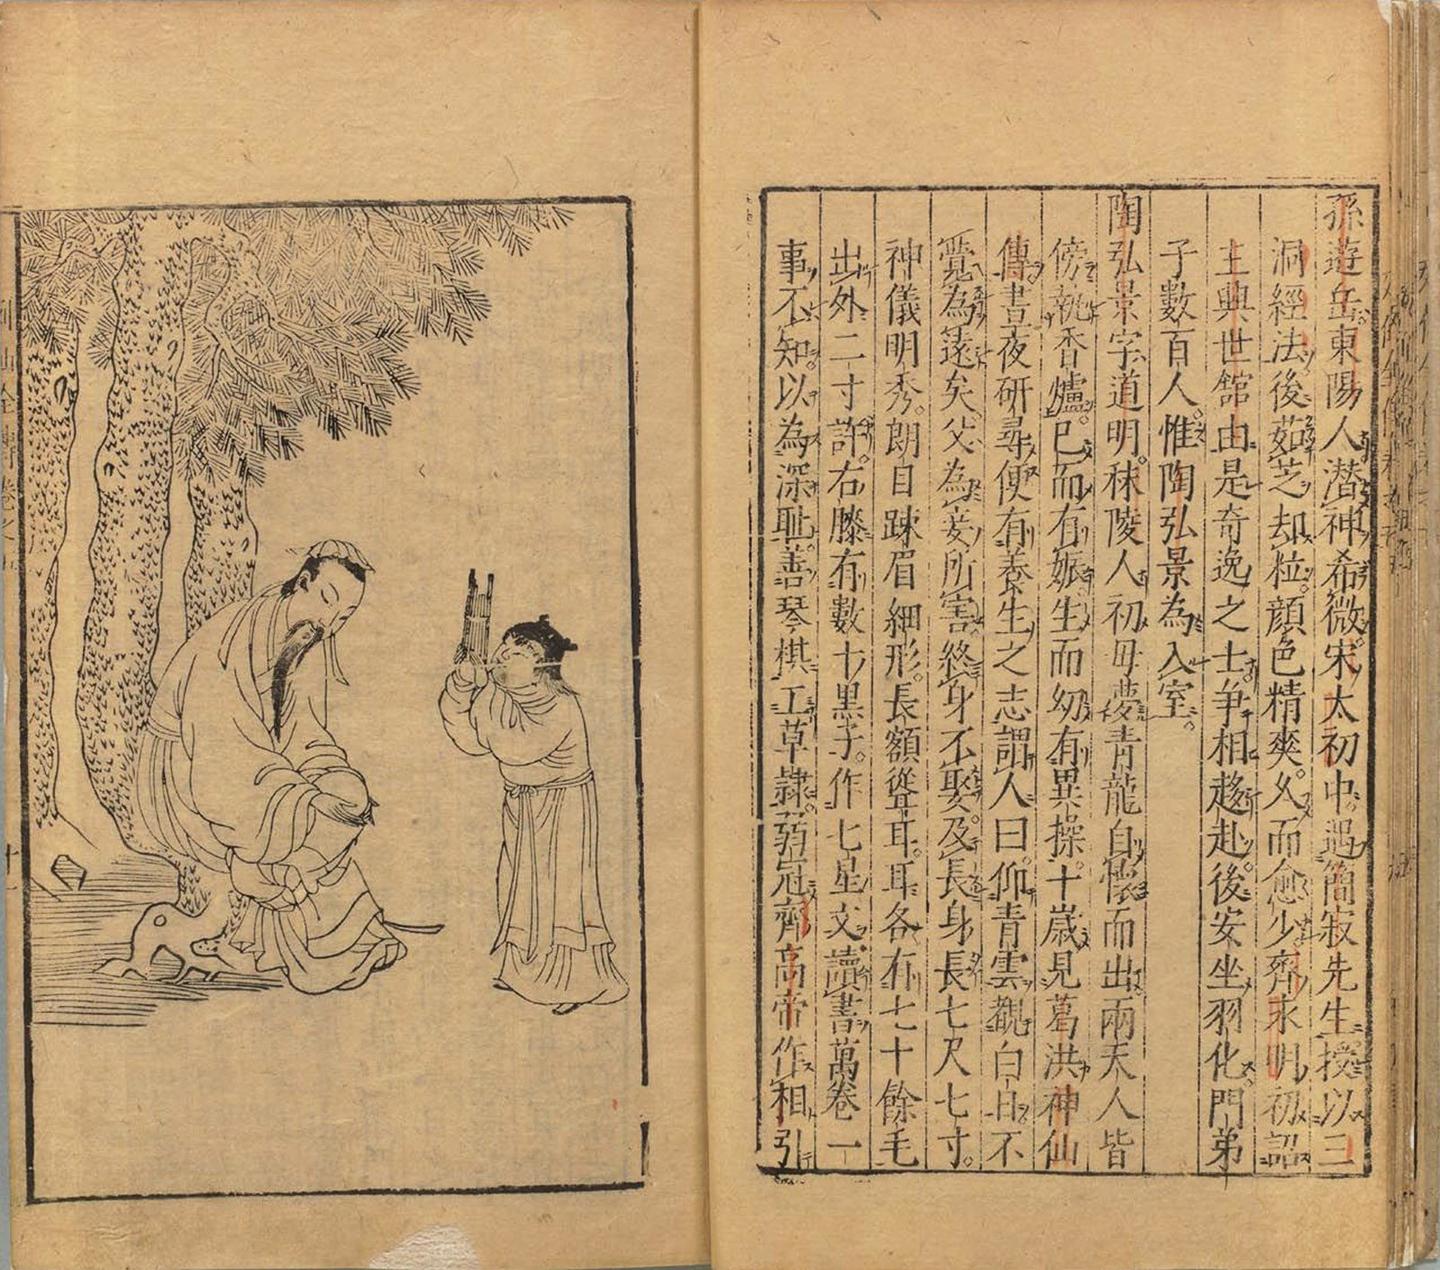 孫遊岳。東陽人。潜神希微。宋太初中。遇簡寂先生授以三
洞經法。後茹芝却粒。顔色精爽。久而愈少。齊永明初詔
主興世舘。由是奇逸之士。争相趍赴。後安坐羽化。門弟
子數百人。惟陶弘景為入室。
陶弘景字道明。秣陵人。初母夢青龍自懷而出。兩天人皆
傍執香爐。已而有娠。生而幼有異操。十歲見葛洪神仙
傳。晝夜研尋。便有養生之志。謂人曰。仰青雲觀白日。不
覺為遠矣。父為妾所害。終身不娶。及長。身長七尺七寸。
神儀明秀。朗目踈眉。細形。長額聳耳。耳各有七十餘毛
出外二寸許。右膝有數十黒子。作七星文。讀書萬卷。一
事不知。以為深耻。善琴棋。工草隷。弱冠齊高帝作相引
列仙全傳卷之
十一